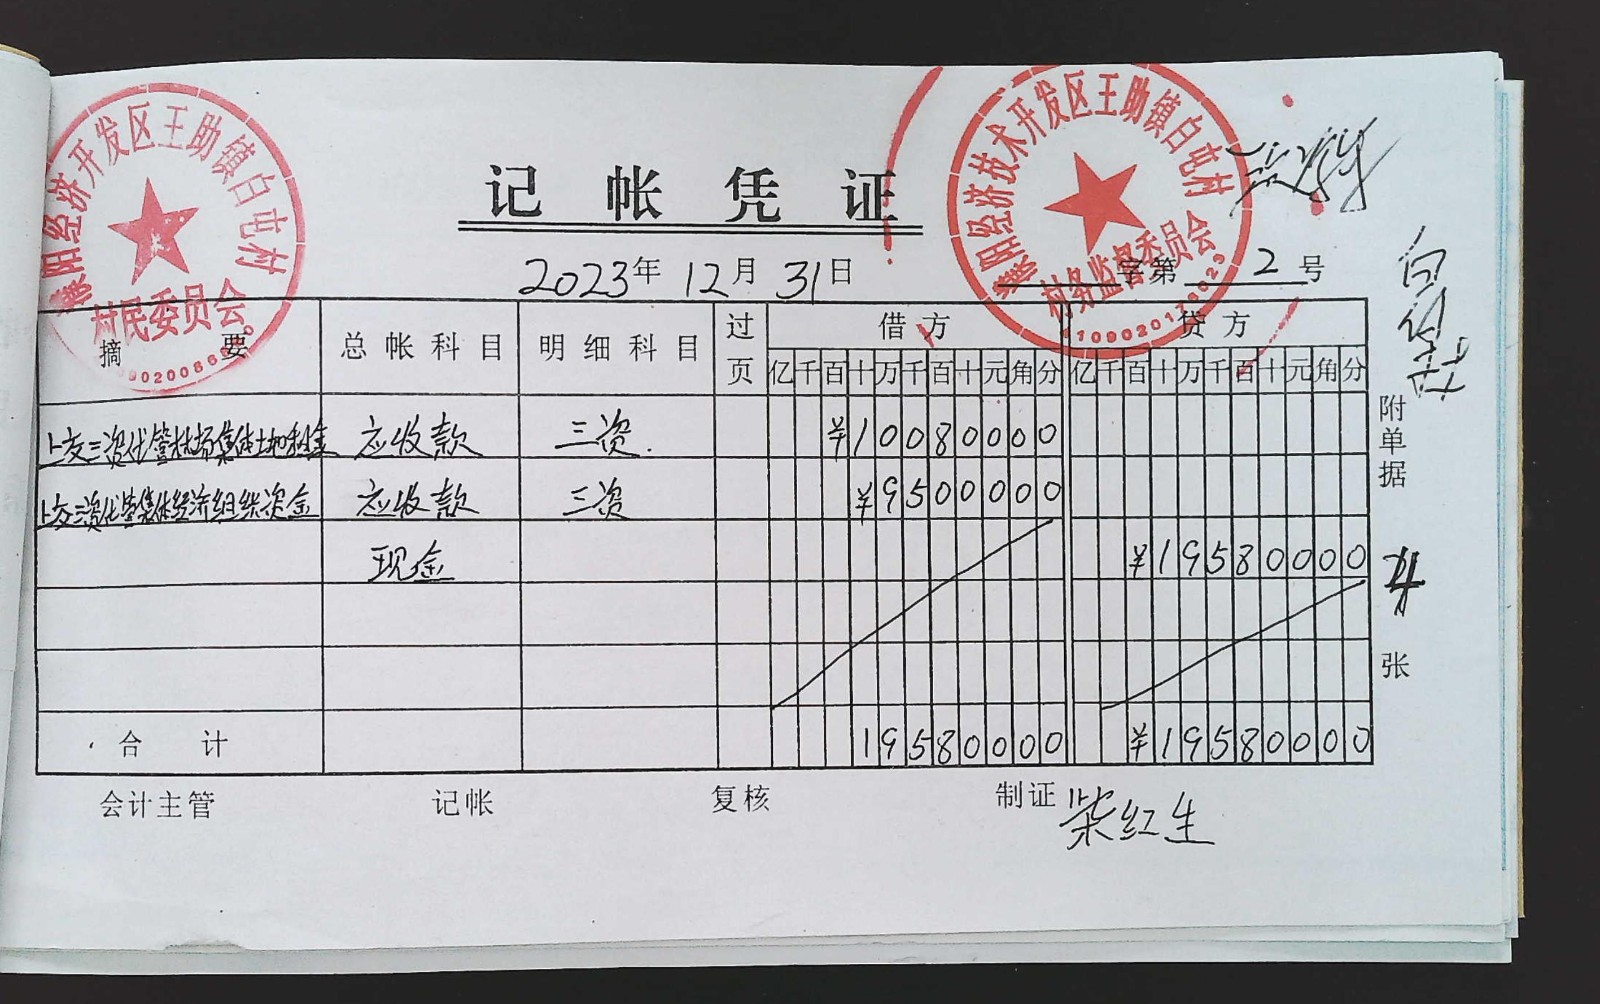 濮阳经济开发区王助镇白屯村
村民委员会
濮阳经济技术开发区王助镇白屯村
村务监督委员会
记帐凭证
2023年 12月 31日
字第 2 号
摘 要 总帐科目 明细科目 过页 借方 贷方
亿千百十万千百十元角分 亿千百十万千百十元角分
上交三资代管林场集体土地租金 应收款 三资. ¥10080000
上交三资代管集体经济组织资金 应收款 三资 ¥9500000
现金 ¥19580000
合 计 19580000 ¥19580000
附单据 4 张
会计主管 记帐 复核 制证 柴红生